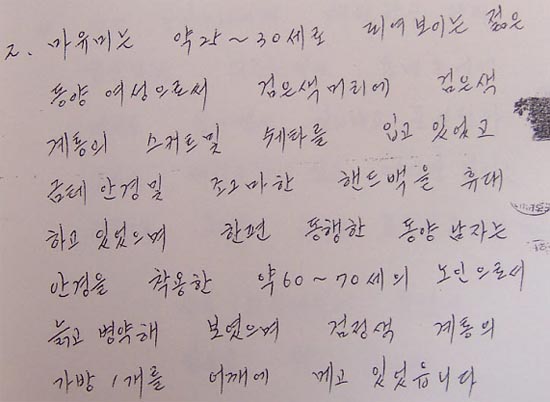 2. 마유미는 약 25~30세로 되여보이는 젊은
동양 여성으로써 검은색머리에 검은색
계통의 스커트및 쉐타를 입고 있었고
금테 안경및 조그마한 핸드백을 휴대
하고 있었으며 한편 동행한 동양 남자는
안경을 착용한 약60~70세의 노인으로서
늙고 병약해 보였으며 검정색 계통의
가방 1개를 어깨에 메고 있었읍니다